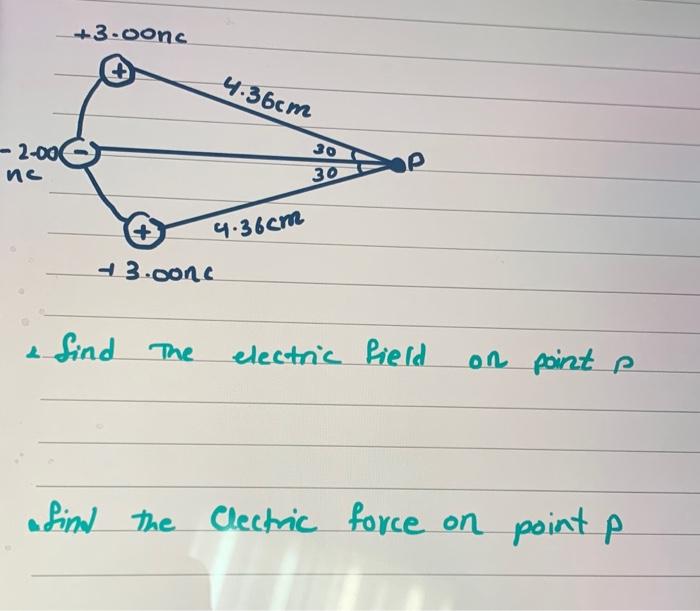 +3.00nc
+
4.36cm
- 2.00 -
nc
30
30
P
+
4.36cm
+ 3.00nc
find The electric field on point p
find the Electric force on point p